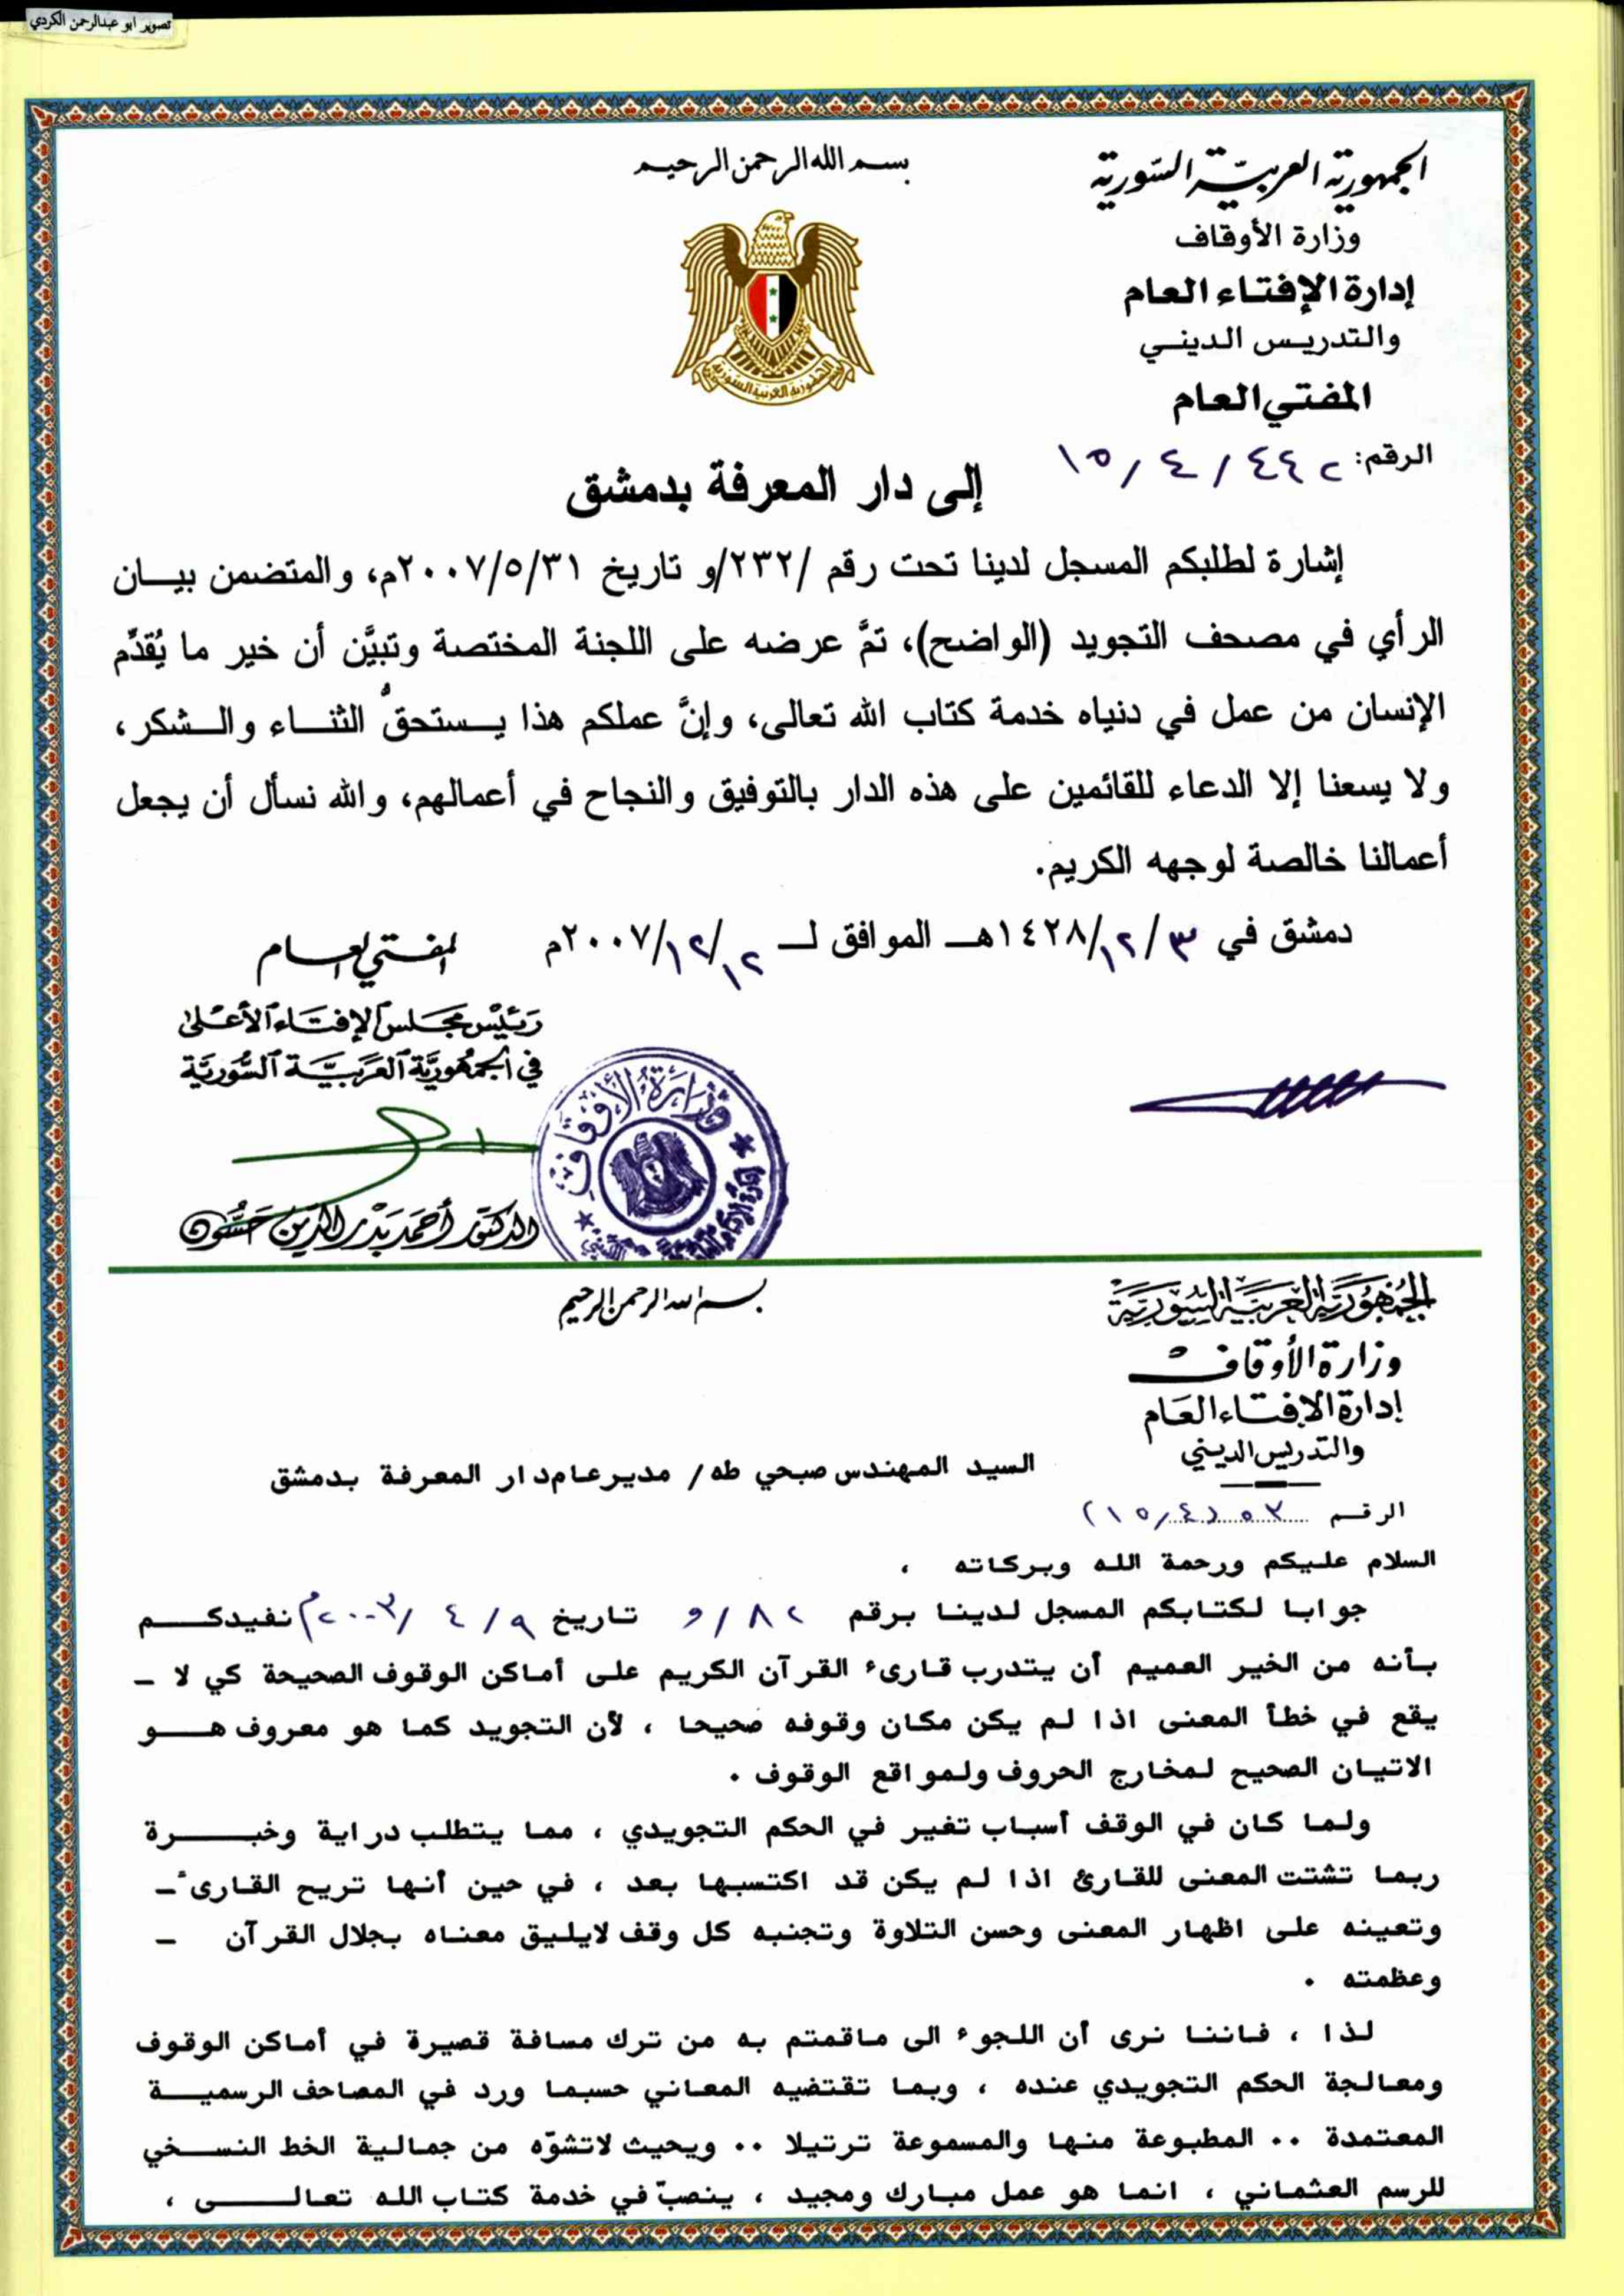 تصوير ابو عبدالرحمن الكردي
الجمهورية العربية السورية
بسم الله الرحمن الرحيم
وزارة الأوقاف
إدارة الإفتاء العام
والتدريس الديني
المفتي العام
الجمهورية العربية السورية
الرقم: ٤٤٢ / ٤ / ١٥
إلى دار المعرفة بدمشق
إشارة لطلبكم المسجل لدينا تحت رقم /٢٣٢/و تاريخ ٢٠٠٧/٥/٣١م، والمتضمن بيــان
الرأي في مصحف التجويد (الواضح)، تمَّ عرضه على اللجنة المختصة وتبيَّن أن خير ما يُقدِّم
الإنسان من عمل في دنياه خدمة كتاب الله تعالى، وإنَّ عملكم هذا يــستحقُّ الثنــاء والــشكر،
ولا يسعنا إلا الدعاء للقائمين على هذه الدار بالتوفيق والنجاح في أعمالهم، والله نسأل أن يجعل
أعمالنا خالصة لوجهه الكريم.
دمشق في ١٤٢٨/١٢/٣هــ الموافق لــ ٢٠٠٧/١٢/١٢م
المفتي العام
رَئيْس مَجَلس الإفتَاء الأعْلىٰ
في الجمْهُوريَّة العَرَبيَّة السُّوريَّة
وزارة الأوقاف
الدكتور أحمَد بَدْر الدّين حَسُّون
الجُمْهُوريَّة العَرَبيَّة السُّوريَّة
بسم الله الرحمن الرحيم
وزارة الأوقاف
إدارة الإفتاء العَام
والتدريس الديني
السيد المهندس صبحي طه / مديرعام دار المعرفة بدمشق
الرقم ٥٣ (١٥/٤)
السلام عليكم ورحمة الله وبركاته ،
جوابا لكتابكم المسجل لدينا برقم ٨٢ / و تاريخ ٩ / ٤ / ٢٠٠٣م نفيدكــم
بأنه من الخير العميم أن يتدرب قارىء القرآن الكريم على أماكن الوقوف الصحيحة كي لا ـ
يقع في خطأ المعنى اذا لم يكن مكان وقوفه صحيحا ، لأن التجويد كما هو معروف هــو
الاتيان الصحيح لمخارج الحروف ولمواقع الوقوف .
ولما كان في الوقف أسباب تغير في الحكم التجويدي ، مما يتطلب دراية وخبــرة
ربما تشتت المعنى للقارئ اذا لم يكن قد اكتسبها بعد ، في حين أنها تريح القارىء ـ
وتعينه على اظهار المعنى وحسن التلاوة وتجنبه كل وقف لايليق معناه بجلال القرآن ـ
وعظمته .
لذا ، فاننا نرى أن اللجوء الى ماقمتم به من ترك مسافة قصيرة في أماكن الوقوف
ومعالجة الحكم التجويدي عنده ، وبما تقتضيه المعاني حسبما ورد في المصاحف الرسميــة
المعتمدة .. المطبوعة منها والمسموعة ترتيلا .. وبحيث لاتشوّه من جمالية الخط النســخي
للرسم العثماني ، انما هو عمل مبارك ومجيد ، ينصبّ في خدمة كتاب الله تعالــى ،